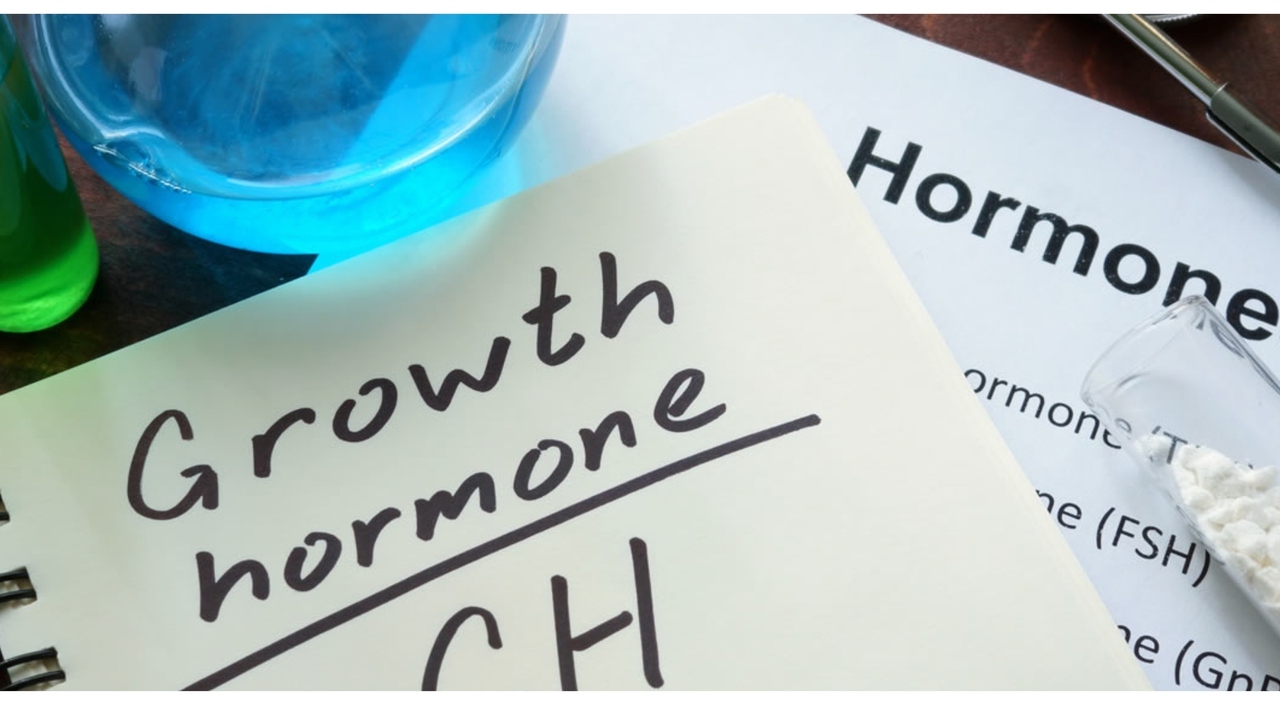 Growth
hormone
GH
Hormone
ormone
ne (FSH)
ne (Gn